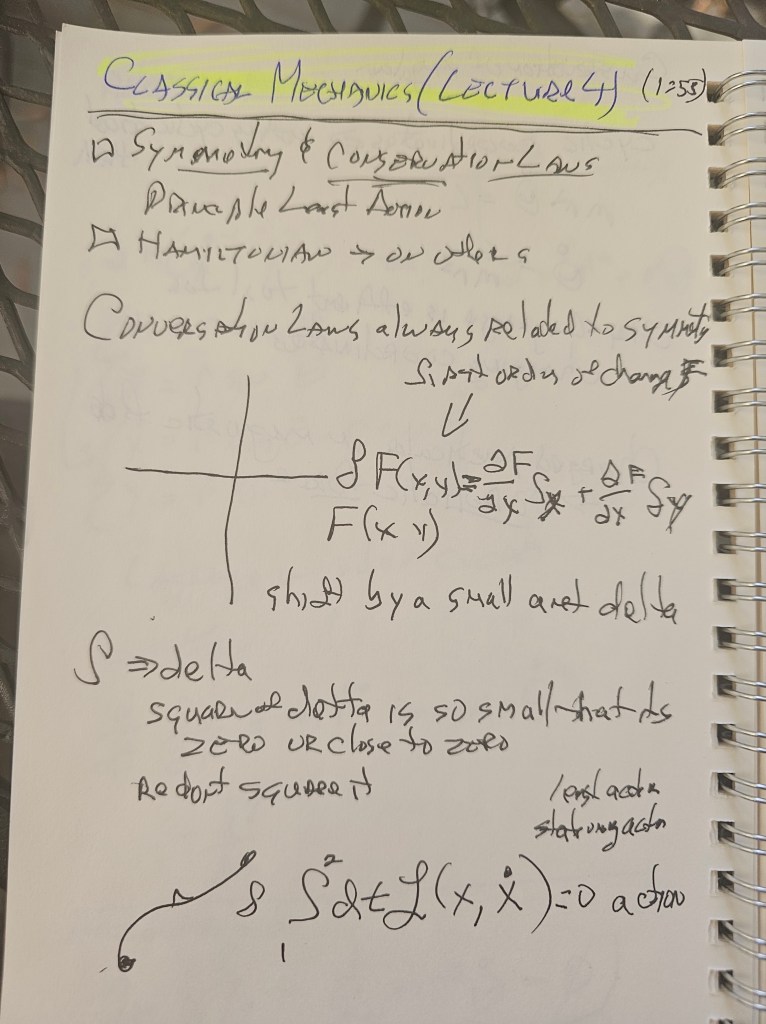 CLASSICAL MECHANICS (LECTURE 4) (1:53)
□ Symmetry & CONSERVATION LAWS
Principle Least Action
□ HAMILTONIAN → on others
CONVERSATION LAWS always related to symmetry
first order of change
⇓
δF(x,y) = ∂F/∂x δx + ∂F/∂x δy
F(x y)
shift by a small amt delta
δ ⇒ delta
square of delta is so small that its
ZERO OR close to ZERO
square it
least action
stationary action
δ ∫₁² dt ℒ(x, ẋ) = 0 action